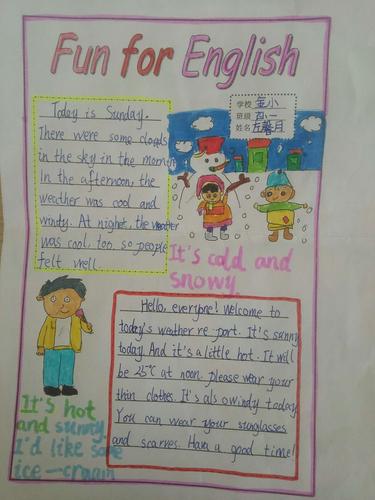 Fun for English
Today is Sunday.
There were some clouds
in the sky in the morning
In the afternoon, the
weather was cool and
windy. At night, the weather
was cool, too, so people
felt well.
学校 金小
班级
姓名 左馨月
It's cold and
snowy.
Hello, everyone! Welcome to
today's weather re port. It's sunny
today. And it's a little hot. It will
be 25℃ at noon. please wear your
thin clothes. It's als owindy today
You can wear your sunglasses
and scarves. Have a good time!
It's hot
and sunny.
I'd like some
ice-cream